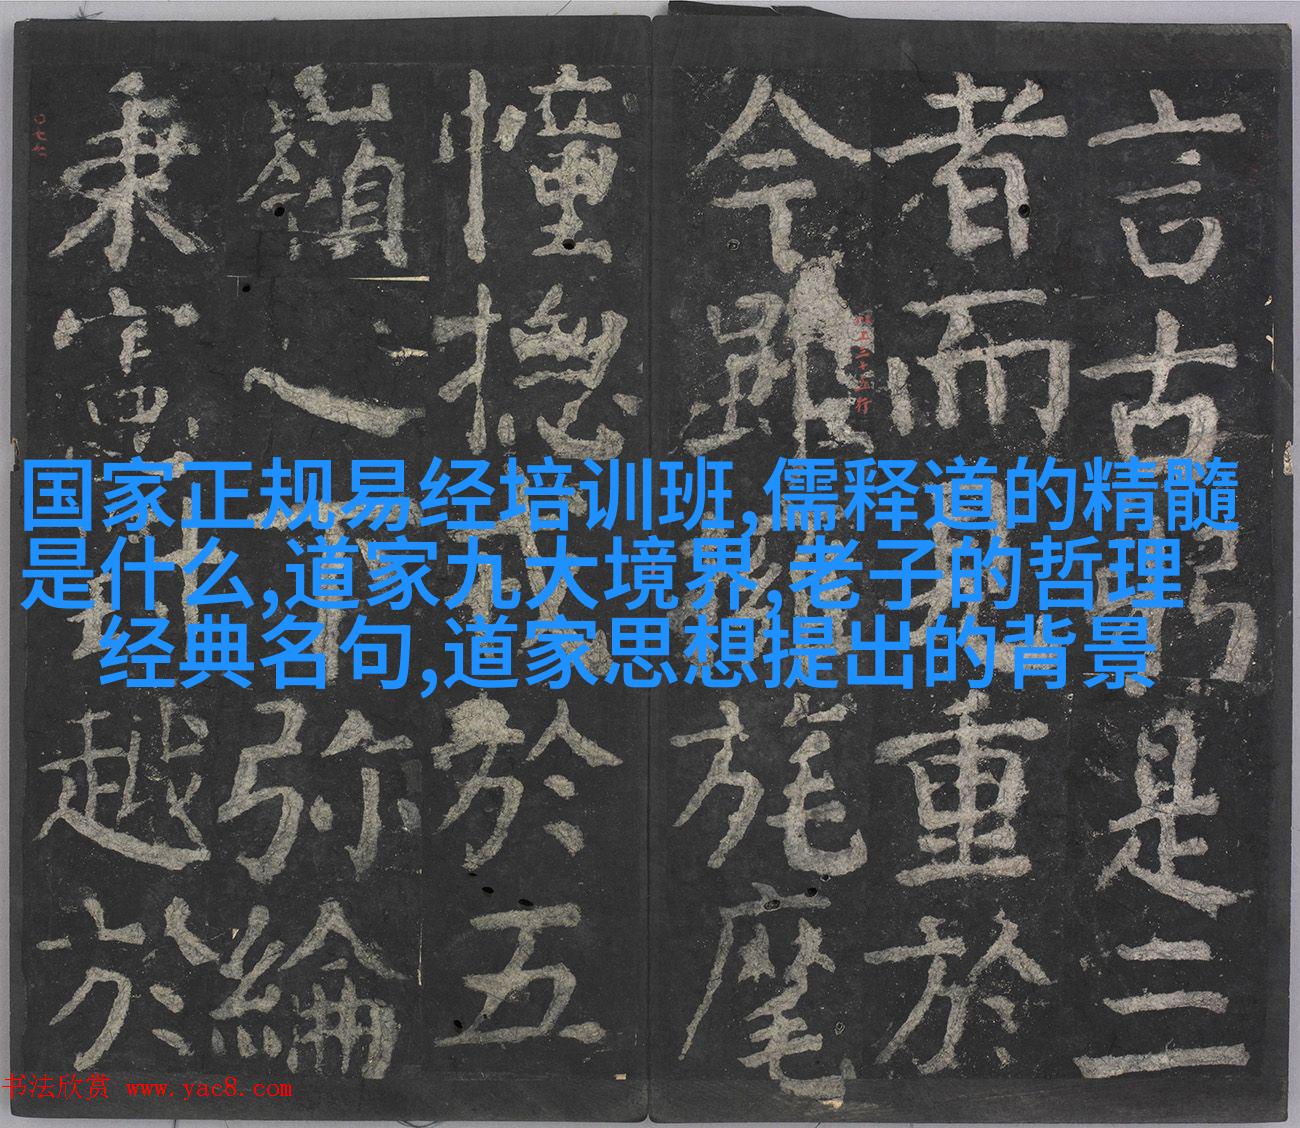 国家正规易经培训班,儒释道的精髓
是什么,道家九大境界,老子的哲理
经典名句,道家思想提出的背景
言古是三
者而重於
今雖旄麾
憧揔於五
嶺之弥綸
秉憲越於
书法欣赏 www.yac8.com